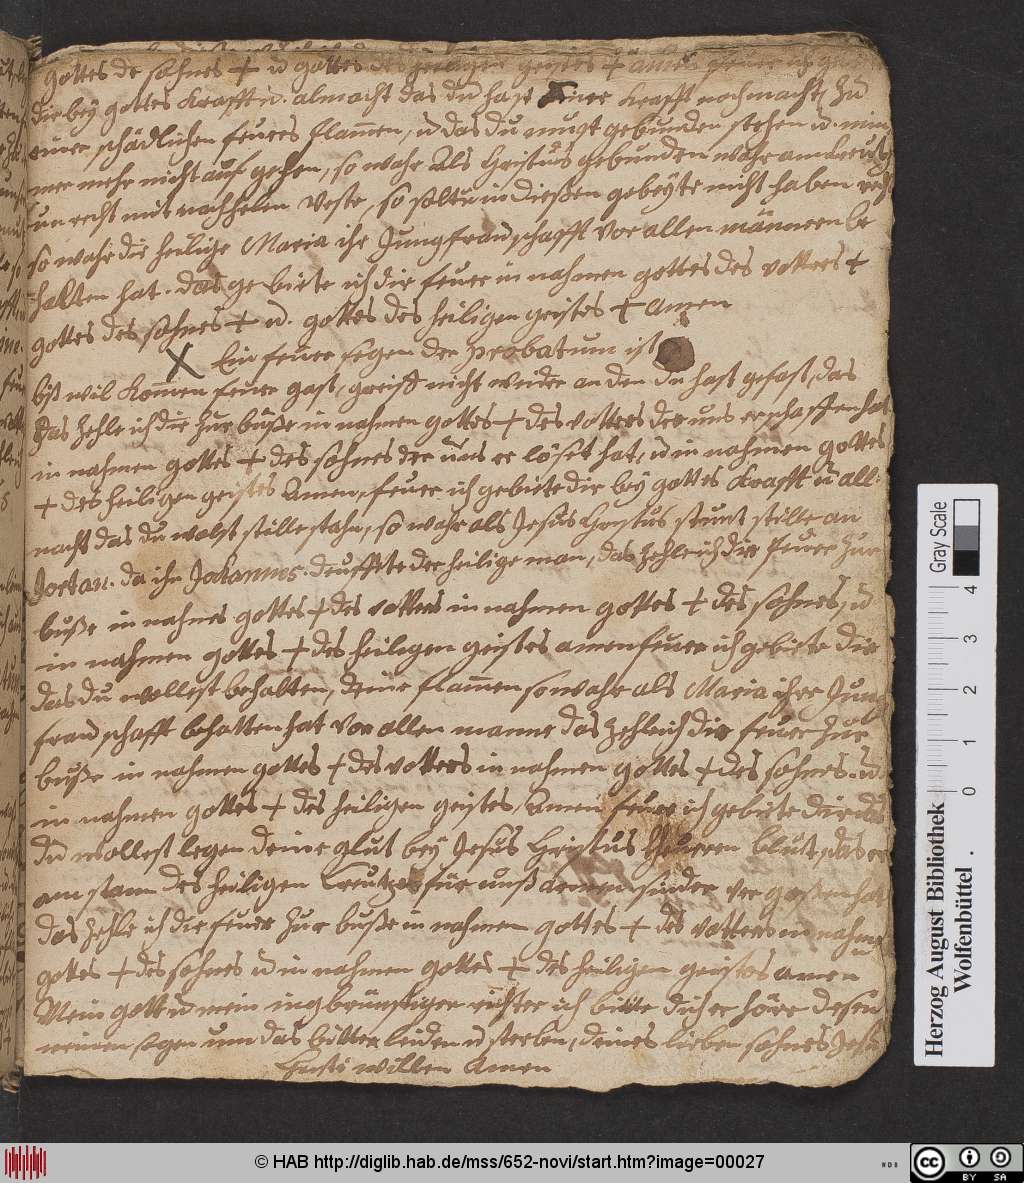 gottes de sohnes + u gottes des heiligen geistes + amen
dir bey gottes Krafft u. almacht das du hast keiner Krafft noch macht, zu
einer schädlichen feuers flamen, u das du mugst gebunden stehen u. nim
mer mehr nicht auf gehen, so wahr als Christus gebunden wahr am Creutz
un recht mit nachhelen veste, so soltu in dießen gebeyte nicht haben
so wahr die heilige Maria ihr Jungfrau schafft vor allen männeren be
halten hat. das ge biete ich dir feuer in nahmen gottes des vatters +
gottes des sohnes + u. gottes des heiligen geistes + amen
X Ein feuer segen der probatum ist
biß wil Komen feuer gast, greiff nicht weider an den du hast gefast, das
das zehle ich die zur buße in nahmen gottes + des vatters der uns erschaffen hat
in nahmen gottes + des sohnes der uns er löset hat, u in nahmen gottes
+ des heiligen geistes Amen, feuer ich gebiete dir bey gottes Krafft u all-
macht das du wolst stille stahn, so wahr als Jesus Christus stunt stille an
Jortan. da ihn Johannes. deuffte der heilige man, das zehle ich dir feuer zur
buße in nahmes gottes + des vatters in nahmen gottes + des sohnes, u
in nahmen gottes + des heiligen geistes amen feuer ich gebiete dir
das du wollest behalten, deine flamen so wahr als Maria ihre Jung
frau schafft behatten hat vor allen manne das zehle ich dir feuer zur
buße in nahmen gottes + des vatters in nahmen gottes + des sohnes. u.
in nahmen gottes + des heiligen geistes, Amen feuer ich gebiete dir das
du wollest legen deine glut bey Jesus Christus theueren blut, das er
am stam des heiligen Creutzes für unß armen sünder ver goßen hat
das zehle ich dir feuer zur buße in nahmen gottes + des vatters in nahmen
gottes + des sohnes u in nahmen gottes + des heiligen geistes amen
Mein gott u mein ingbrünstiger richter ich bitte dich er höre desen
meinen segen um das bitter leiden u sterben, deines lieben sohnes Jesu
Christi willen Amen
Herzog August Bibliothek
Wolfenbüttel
Gray Scale
0 1 2 3 4
© HAB http://diglib.hab.de/mss/652-novi/start.htm?image=00027
cc BY SA